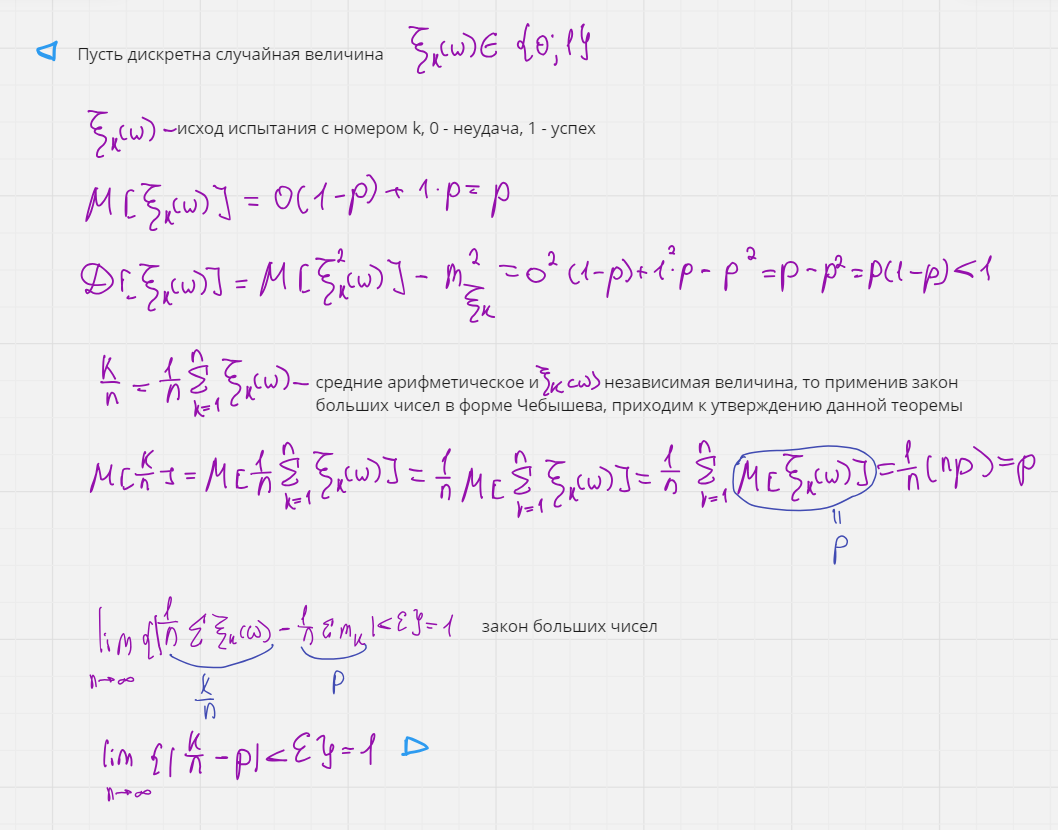 Пусть дискретна случайная величина ξₖ(ω)∈ {0; 1}
ξₖ(ω) – исход испытания с номером k, 0 - неудача, 1 - успех
M[ξₖ(ω)] = 0(1-p) + 1·p = p
D[ξₖ(ω)] = M[ξₖ²(ω)] - m²_ξₖ = 0²(1-p)+1²·p - p² = p - p² = p(1-p) < 1
K/n = 1/n ∑_{k=1}^{n} ξₖ(ω) – средние арифметическое и ξₖ(ω) независимая величина, то применив закон
больших чисел в форме Чебышева, приходим к утверждению данной теоремы
M[K/n] = M[1/n ∑_{k=1}^{n} ξₖ(ω)] = 1/n M[∑_{k=1}^{n} ξₖ(ω)] = 1/n ∑_{k=1}^{n} M[ξₖ(ω)] = 1/n (np) = p
=
p
lim_{n→∞} {|1/n ∑ ξₖ(ω) - 1/n ∑ mₖ| < ε} = 1 закон больших чисел
K/n p
lim_{n→∞} {|K/n - p| < ε} = 1